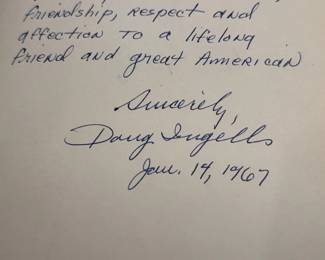 friendship, respect and
affection to a lifelong
friend and great American
Sincerely,
Doug Ingells
Jan. 14, 1967